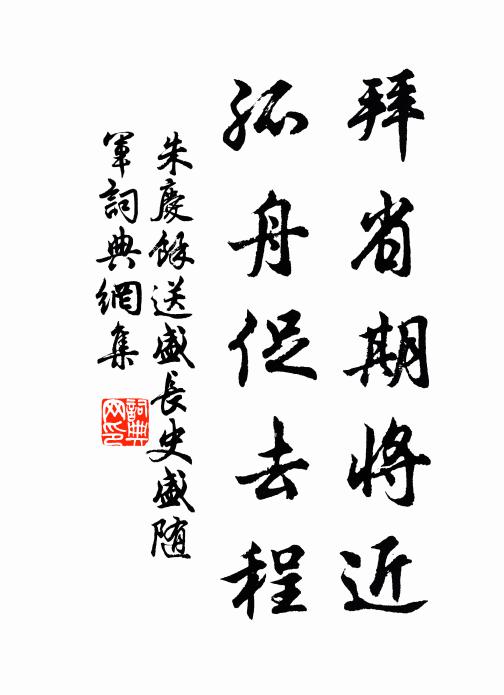 拜省期將近
孤舟促去程
朱慶餘送盛長史盛随
軍詞典網集
詞典
网印